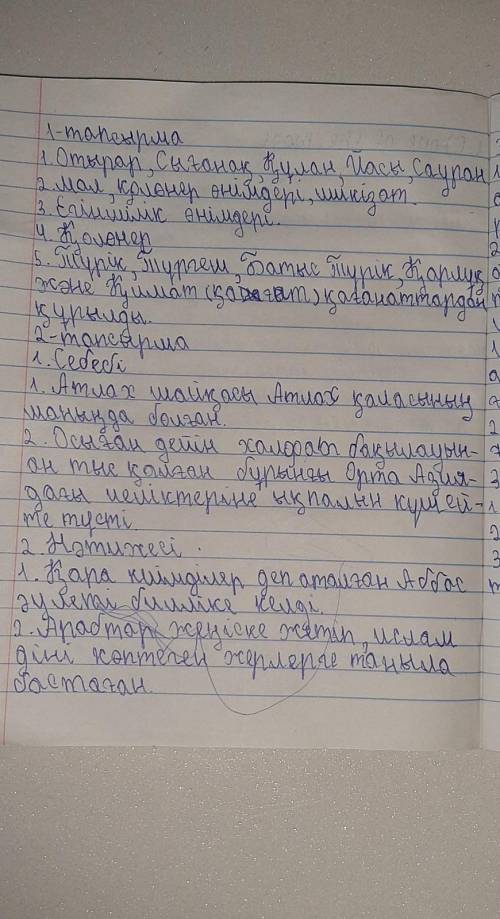 1-тапсырма
1. Отырар, Сығанақ, Құлан, Йасы, Сауран
2. Мал, қолөнер өнімдері, шикізат.
3. Егіншілік өнімдері.
4. Қолөнер
5. Түрік, Түргеш, Батыс Түрік, Қарлұқ
және Құймат қағанаттардан
құрылды.
2-тапсырма
1. Себебі
1. Атлах шайқасы Атлах қаласының
маңында болған.
2. Осыған дейін халофат бақылауын-
ан тыс қалған бұрынғы Орта Азия-
дағы иеліктеріне ықпалын күшей-
те түсті.
2. Нәтижесі.
1. Қара киімділер деп аталған Аббас
әулеті билікке келді.
2. Арабтар жеңіске жетіп, ислам
діні көптеген жерлерге таныла
бастаған.